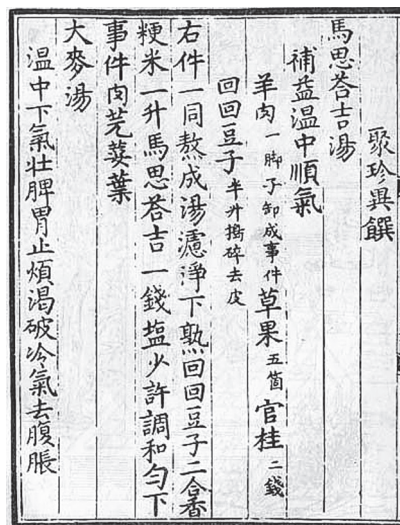 聚珍異饌
馬思荅吉湯
補益温中順氣
羊肉一脚子卸成事件草果五箇官桂二錢
回回豆子半升擣碎去皮
右件一同熬成湯濾淨下熟回回豆子二合香
粳米一升馬思荅吉一錢塩少許調和匀下
事件肉芫荽葉
大麥湯
温中下氣壯脾胃止煩渴破冷氣去腹脹